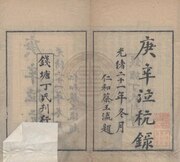 庚辛泣杭錄
光緒二十一年冬月
仁和蔡玉瀛題
錢塘丁氏刊